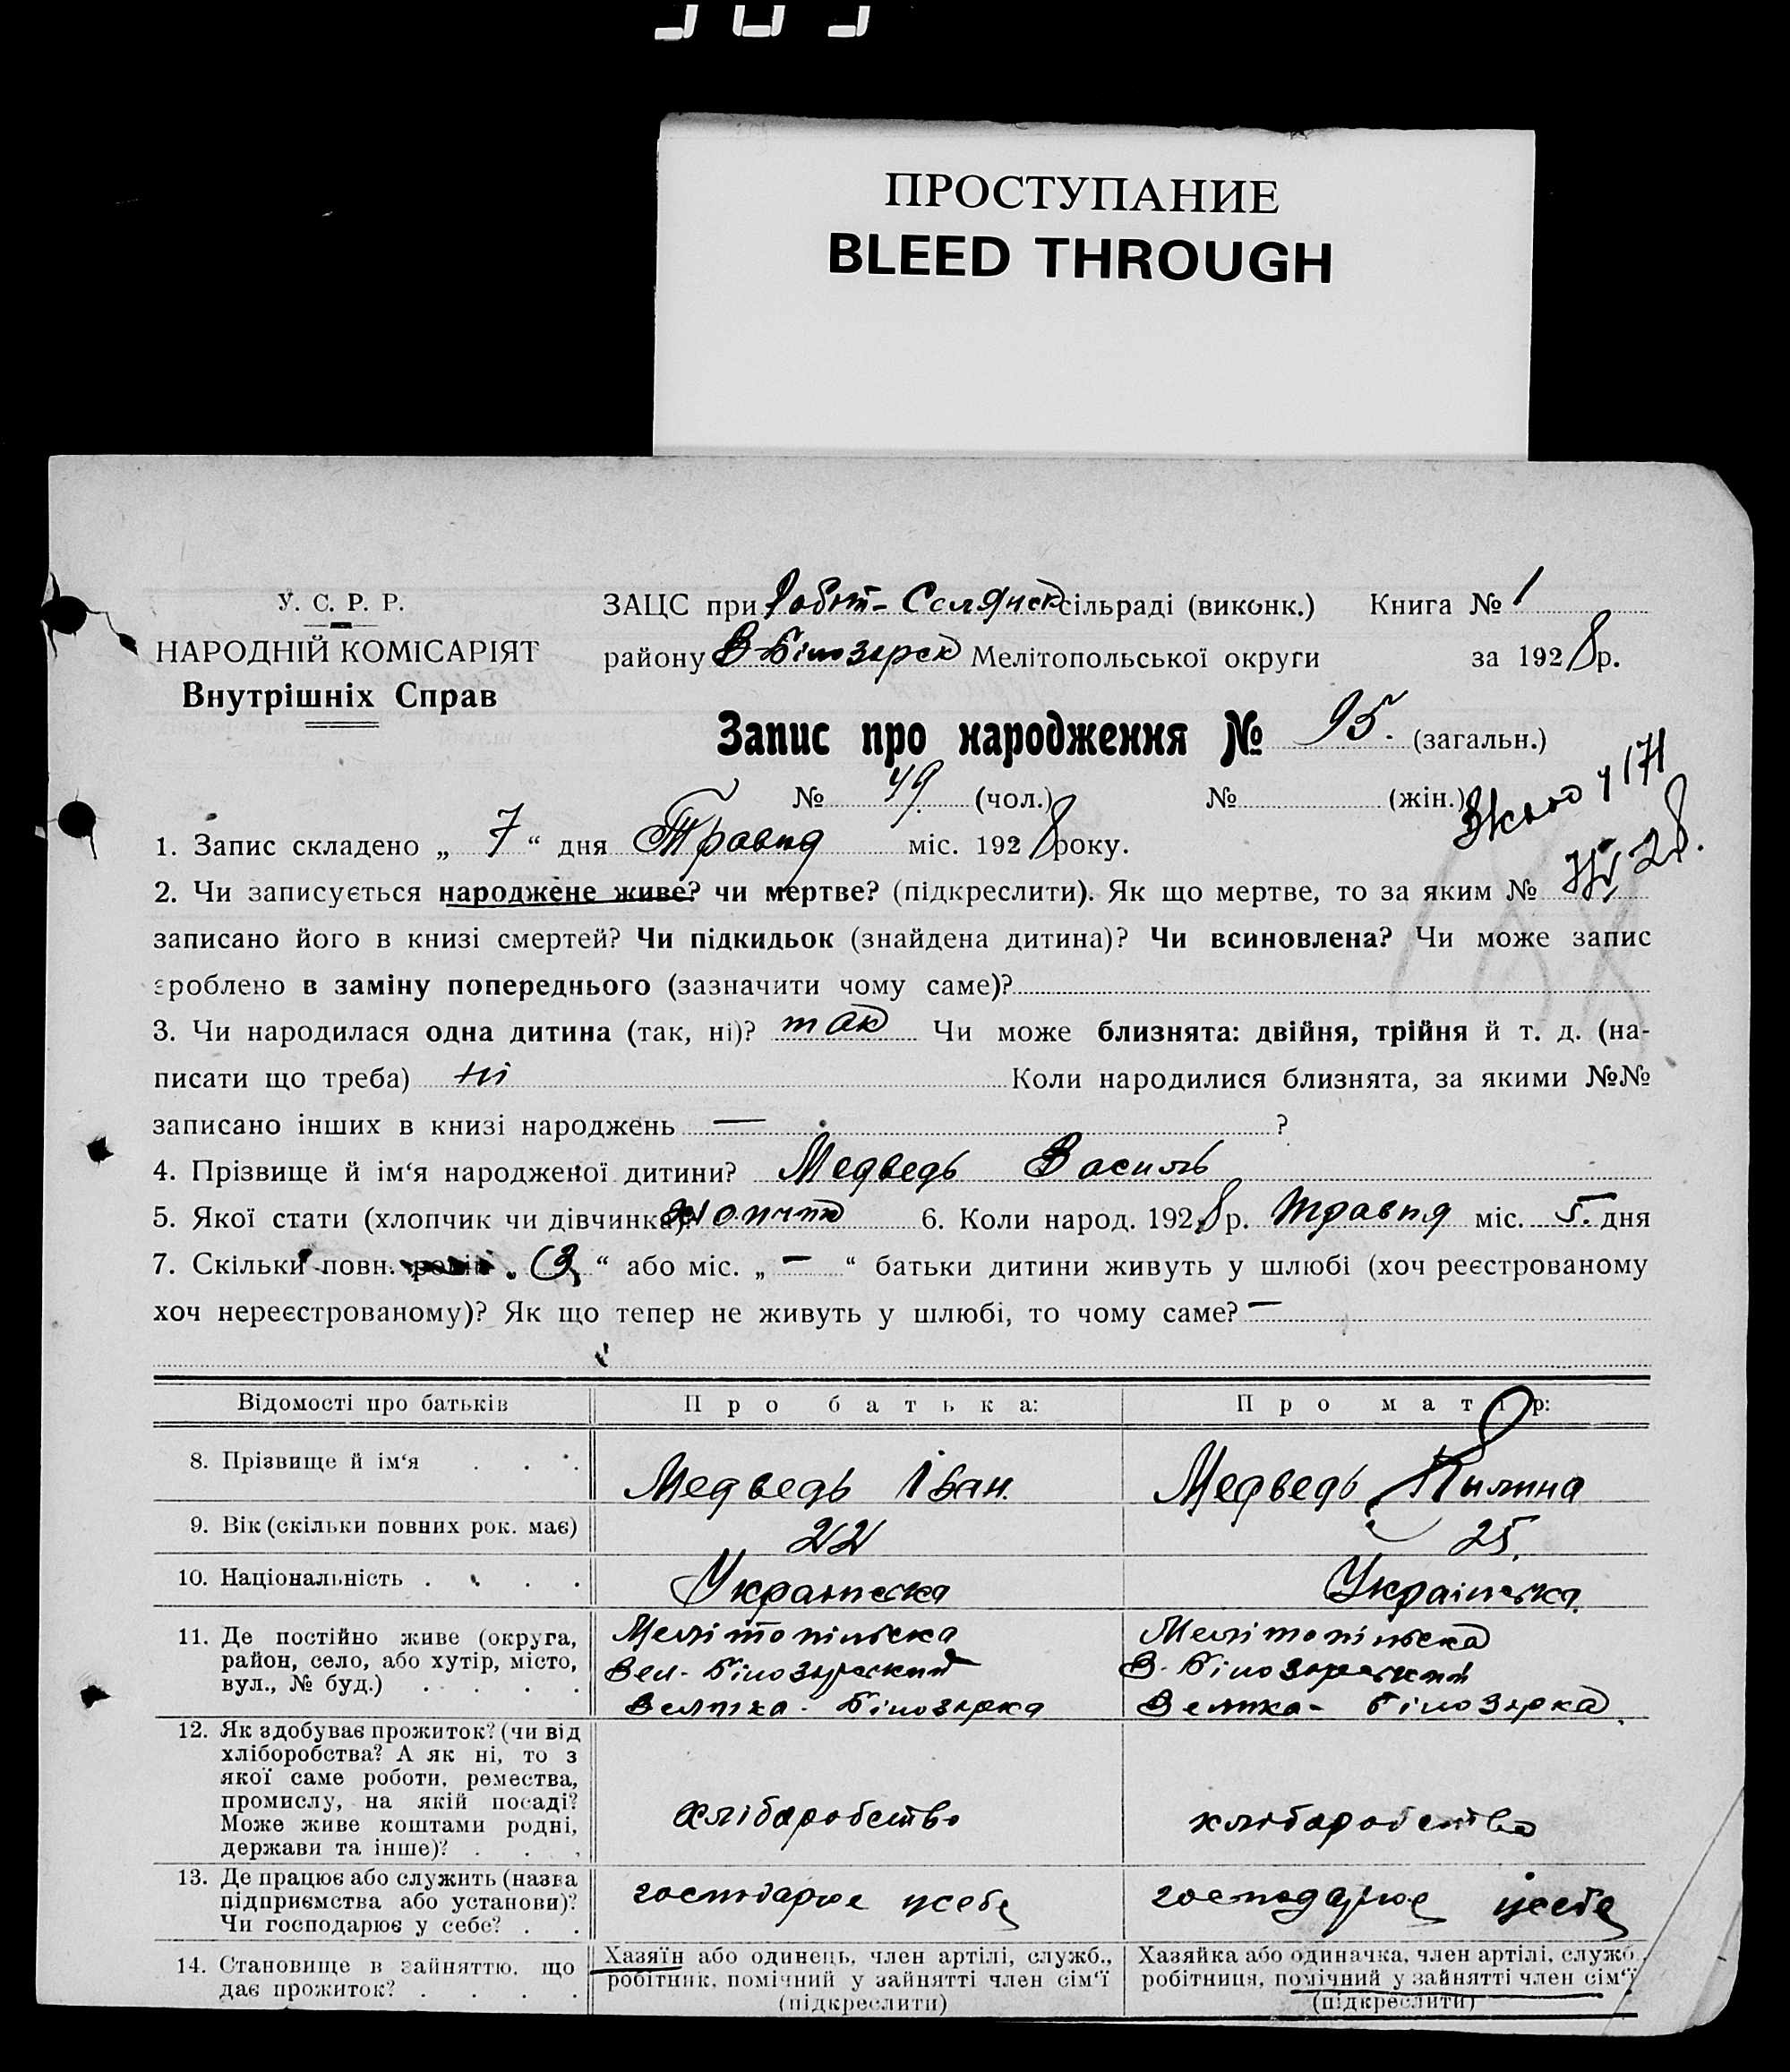 ПРОСТУПАНИЕ
BLEED THROUGH
У. С. Р. Р.
НАРОДНІЙ КОМІСАРІЯТ
Внутрішніх Справ
ЗАЦС при Робіт-Селянск сільраді (виконк.) Книга № 1
району В-Білозерск Мелітопольської округи за 1928 р.
Запис про народження № 95. (загальн.)
№ 49. (чол.) № (жін.)
1. Запис складено „ 7 “ дня Травня міс. 1928 року.
2. Чи записується народжене живе? чи мертве? (підкреслити). Як що мертве, то за яким №
записано його в книзі смертей? Чи підкидьок (знайдена дитина)? Чи всиновлена? Чи може запис
зроблено в заміну попереднього (зазначити чому саме)?
3. Чи народилася одна дитина (так, ні)? так Чи може близнята: двійня, трійня й т. д. (на-
писати що треба) ні Коли народилися близнята, за якими №№
записано інших в книзі народжень — ?
4. Прізвище й ім‘я народженої дитини? Медведь Василь
5. Якої стати (хлопчик чи дівчинка)? 6. Коли народ. 1928 р. травня міс. 5. дня
7. Скільки повн. років „ 3 “ або міс. „ — “ батьки дитини живуть у шлюбі (хоч реєстрованому
хоч нереєстрованому)? Як що тепер не живуть у шлюбі, то чому саме? —
Відомості про батьків Про батька: Про матір:
8. Прізвище й ім‘я Медведь Іван. Медведь Килина
9. Вік (скільки повних рок. має) 22 25.
10. Національність Українська Українська
11. Де постійно живе (округа,
район, село, або хутір, місто,
вул., № буд.)
Мелітопільска
Вел-Білозерский
Велика-Білозерка
Мелітопільска
В-Білозерский
Велика-Білозерка
12. Як здобуває прожиток? (чи від
хліборобства? А як ні, то з
якої саме роботи, ремества,
промислу, на якій посаді?
Може живе коштами родні,
держави та інше)?
хлібаробство
хлібаробство
13. Де працює або служить (назва
підприємства або установи)?
Чи господарює у себе?
господарює усебе
господарює усебе
14. Становище в зайняттю, що
дає прожиток?
Хазяїн або одинець, член артілі, служб.,
робітник, помічний у зайнятті член сім‘ї
(підкреслити)
Хазяйка або одиначка, член артілі, служб.,
робітниця, помічний у зайнятті член сім‘ї
(підкреслити)